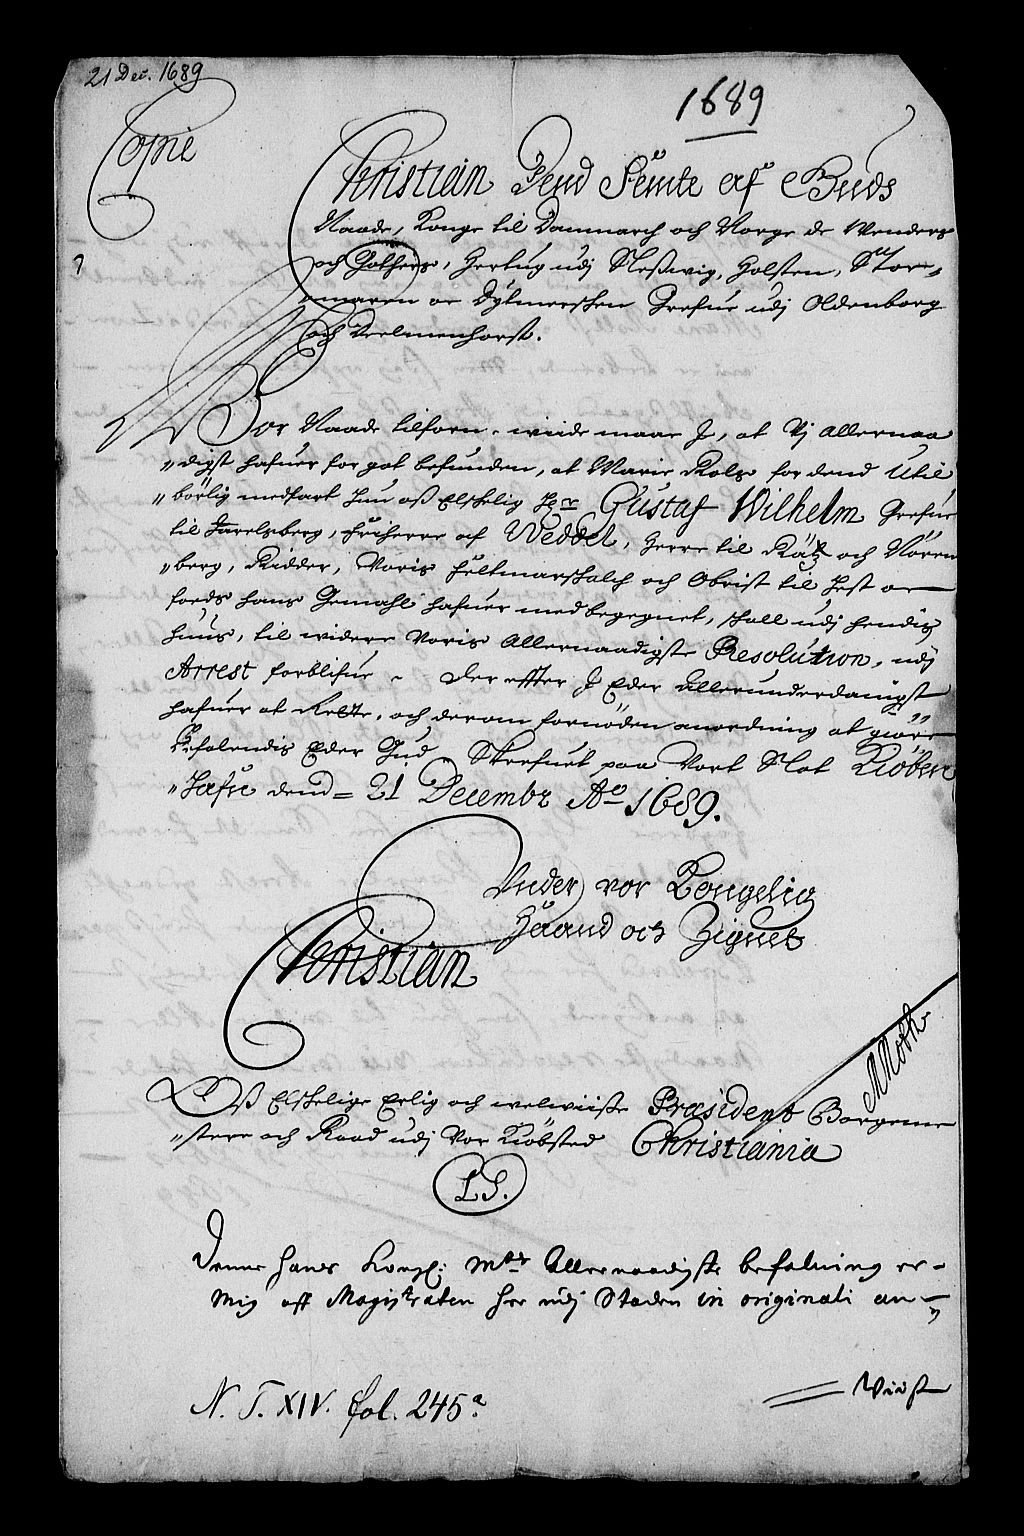 21 Dec. 1689
1689
Copie
Christian Dend Femte af Guds
Naade, Konge til Danmarch och Norge de Wenders
och Gothers, Hertug udj Sleswig, Holsten, Stor-
maren oc Dytmerschen Grefue udj Oldenborg
och Delmenhorst.
Vor Naade tilforn. wiide maae J, at Vj allernaa
"digst hafuer for got befunden, at Marie Rols for dend Util
"börlig medfart hun oß Elskelig Hr Gustaf Wilhelm Grefue
til Jarelsberg, friherre af Weddel, Herre til
"berg, Ridder, Voris feltmarschalch och Obrist til Hest oc
fords hans Gemahl hafuer medbegegnet, skall udj hendis
huus, til widere Voris Allernaadigste Resolution, udj
Arrest forblifue. Der effter J Eder allerunderdanigst
hafuer at Rette, och derom fornöden anordning at giöre
Befalendis Eder Gud Skrefuet paa Vort Slot Kiöben
"Hafn dend 21 Decembr Ao 1689.
Under vor Kongelig
Haand och Zignet
Christian
MMoth
Oß Elskelige Erlig och welwiiße Præsident Borgeme
"stere och Raad udj Vor Kiöbsted Christiania
LS.
Denne hans Kongl: Mtts Allernaadigste befalning er
Mig aff Magistraten her udj Staden in originali an-
Viist
N. T. XIV. fol. 245a